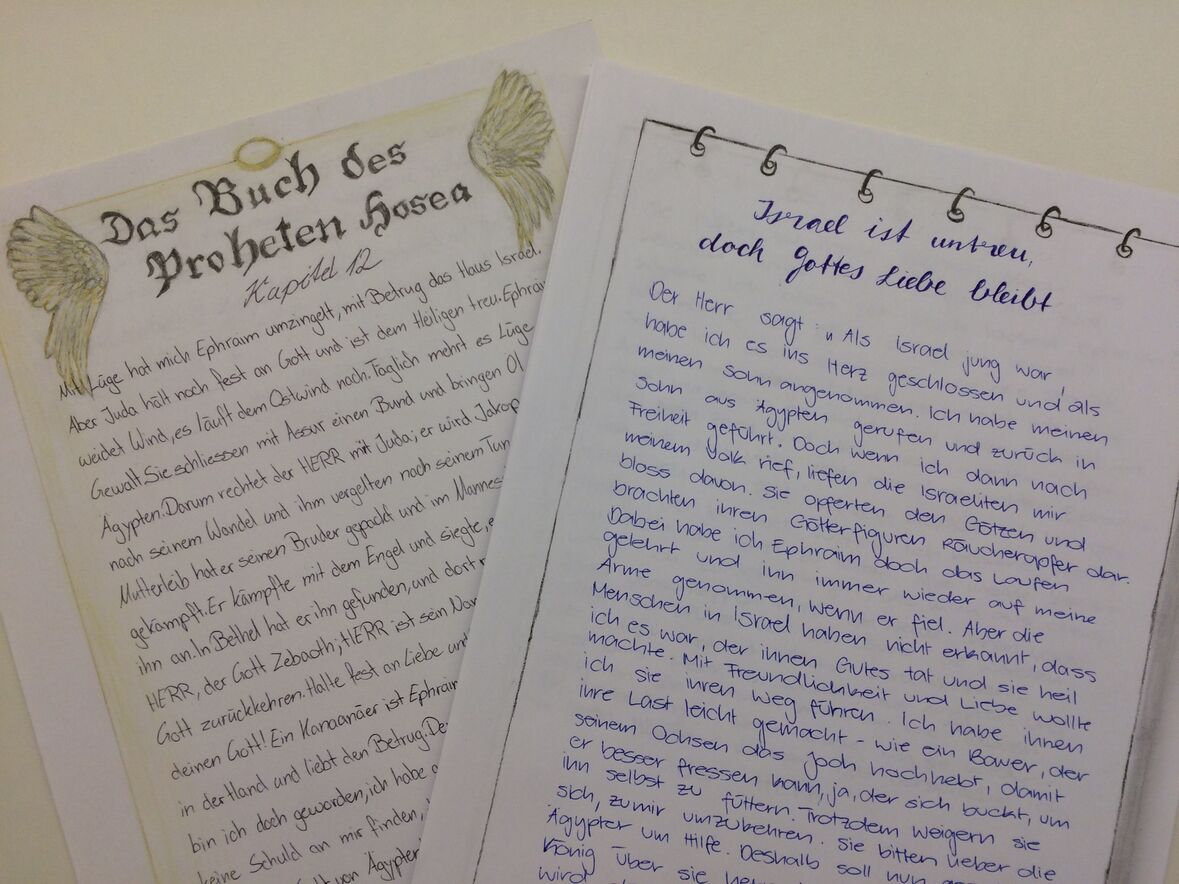 Das Buch des
Proheten Hosea
Kapitel 12
Mit Lüge hat mich Ephraim umzingelt, mit Betrug das Haus Israel.
Aber Juda hält noch fest an Gott und ist dem Heiligen treu. Ephraim
weidet Wind, es läuft dem Ostwind nach. Täglich mehrt es Lüge
Gewalt. Sie schliessen mit Assur einen Bund und bringen Öl
Ägypten. Darum rechtet der HERR mit Juda; er wird Jakop
nach seinem Wandel und ihm vergelten nach seinem Tun
Mutterleib hat er seinen Bruder gepackt und im Mannes
gekämpft. Er kämpfte mit dem Engel und siegte, e
ihn an. In Bethel hat er ihn gefunden, und dort
HERR, der Gott Zebaoth; HERR ist sein Nam
Gott zurückkehren. Halte fest an Liebe und
deinen Gott! Ein Kanaanäer ist Ephraim
in der Hand und liebt den Betrug. De
bin ich doch geworden, ich habe
keine Schuld an mir finden,
von Ägypten
Israel ist untreu,
doch Gottes Liebe bleibt
Der Herr sagt: „Als Israel jung war,
habe ich es ins Herz geschlossen und als
meinen Sohn angenommen. Ich habe meinen
Sohn aus Ägypten gerufen und zurück in
Freiheit geführt. Doch wenn ich dann nach
meinem Volk rief, liefen die Israeliten mir
bloss davon. Sie opferten den Götzen und
brachten ihren Götterfiguren Räucheropfer dar.
Dabei habe ich Ephraim doch das Laufen
gelehrt und ihn immer wieder auf meine
Arme genommen, wenn er fiel. Aber die
Menschen in Israel haben nicht erkannt, dass
ich es war, der ihnen Gutes tat und sie heil
machte. Mit Freundlichkeit und Liebe wollte
ich sie ihren Weg führen. Ich habe ihnen
ihre Last leicht gemacht - wie ein Bauer, der
seinem Ochsen das Joch hochhebt, damit
er besser fressen kann, ja, der sich bückt, um
ihn selbst zu füttern. Trotzdem weigern sie
sich, zu mir umzukehren. Sie bitten lieber die
Ägypter um Hilfe. Deshalb soll nun
König über sie
wird